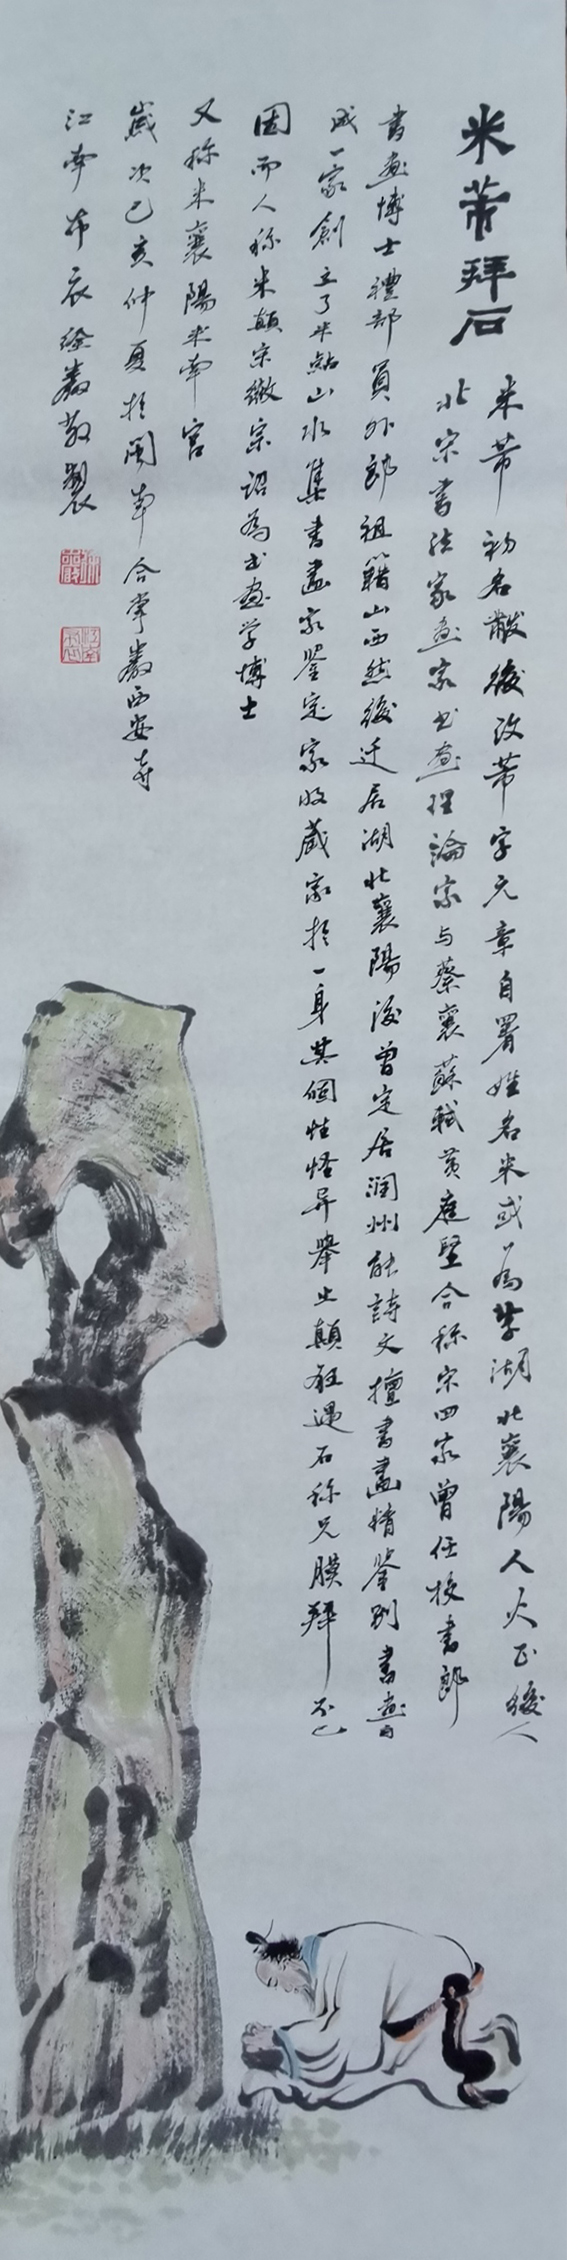 米芾拜石
米芾初名黻後改芾字元章自署姓名米或为芊湖北襄陽人火正後人
北宋書法家画家书画理論家与蔡襄蘇軾黄庭堅合称宋四家曾任校書郎
書画博士禮部員外郎祖籍山西然後迁居湖北襄陽後曾定居润州能詩文擅書畫精鉴别書画自
成一家創立了米點山水集書畫家鉴定家收藏家於一身其個性怪异舉止顛狂遇石称兄膜拜不已
因而人称米顛宋徽宗诏为书画学博士
又称米襄陽米南宫
歲次己亥仲夏於闽南合掌巖西安寺
江南布衣徐巖敬製
徐巖
江南布衣